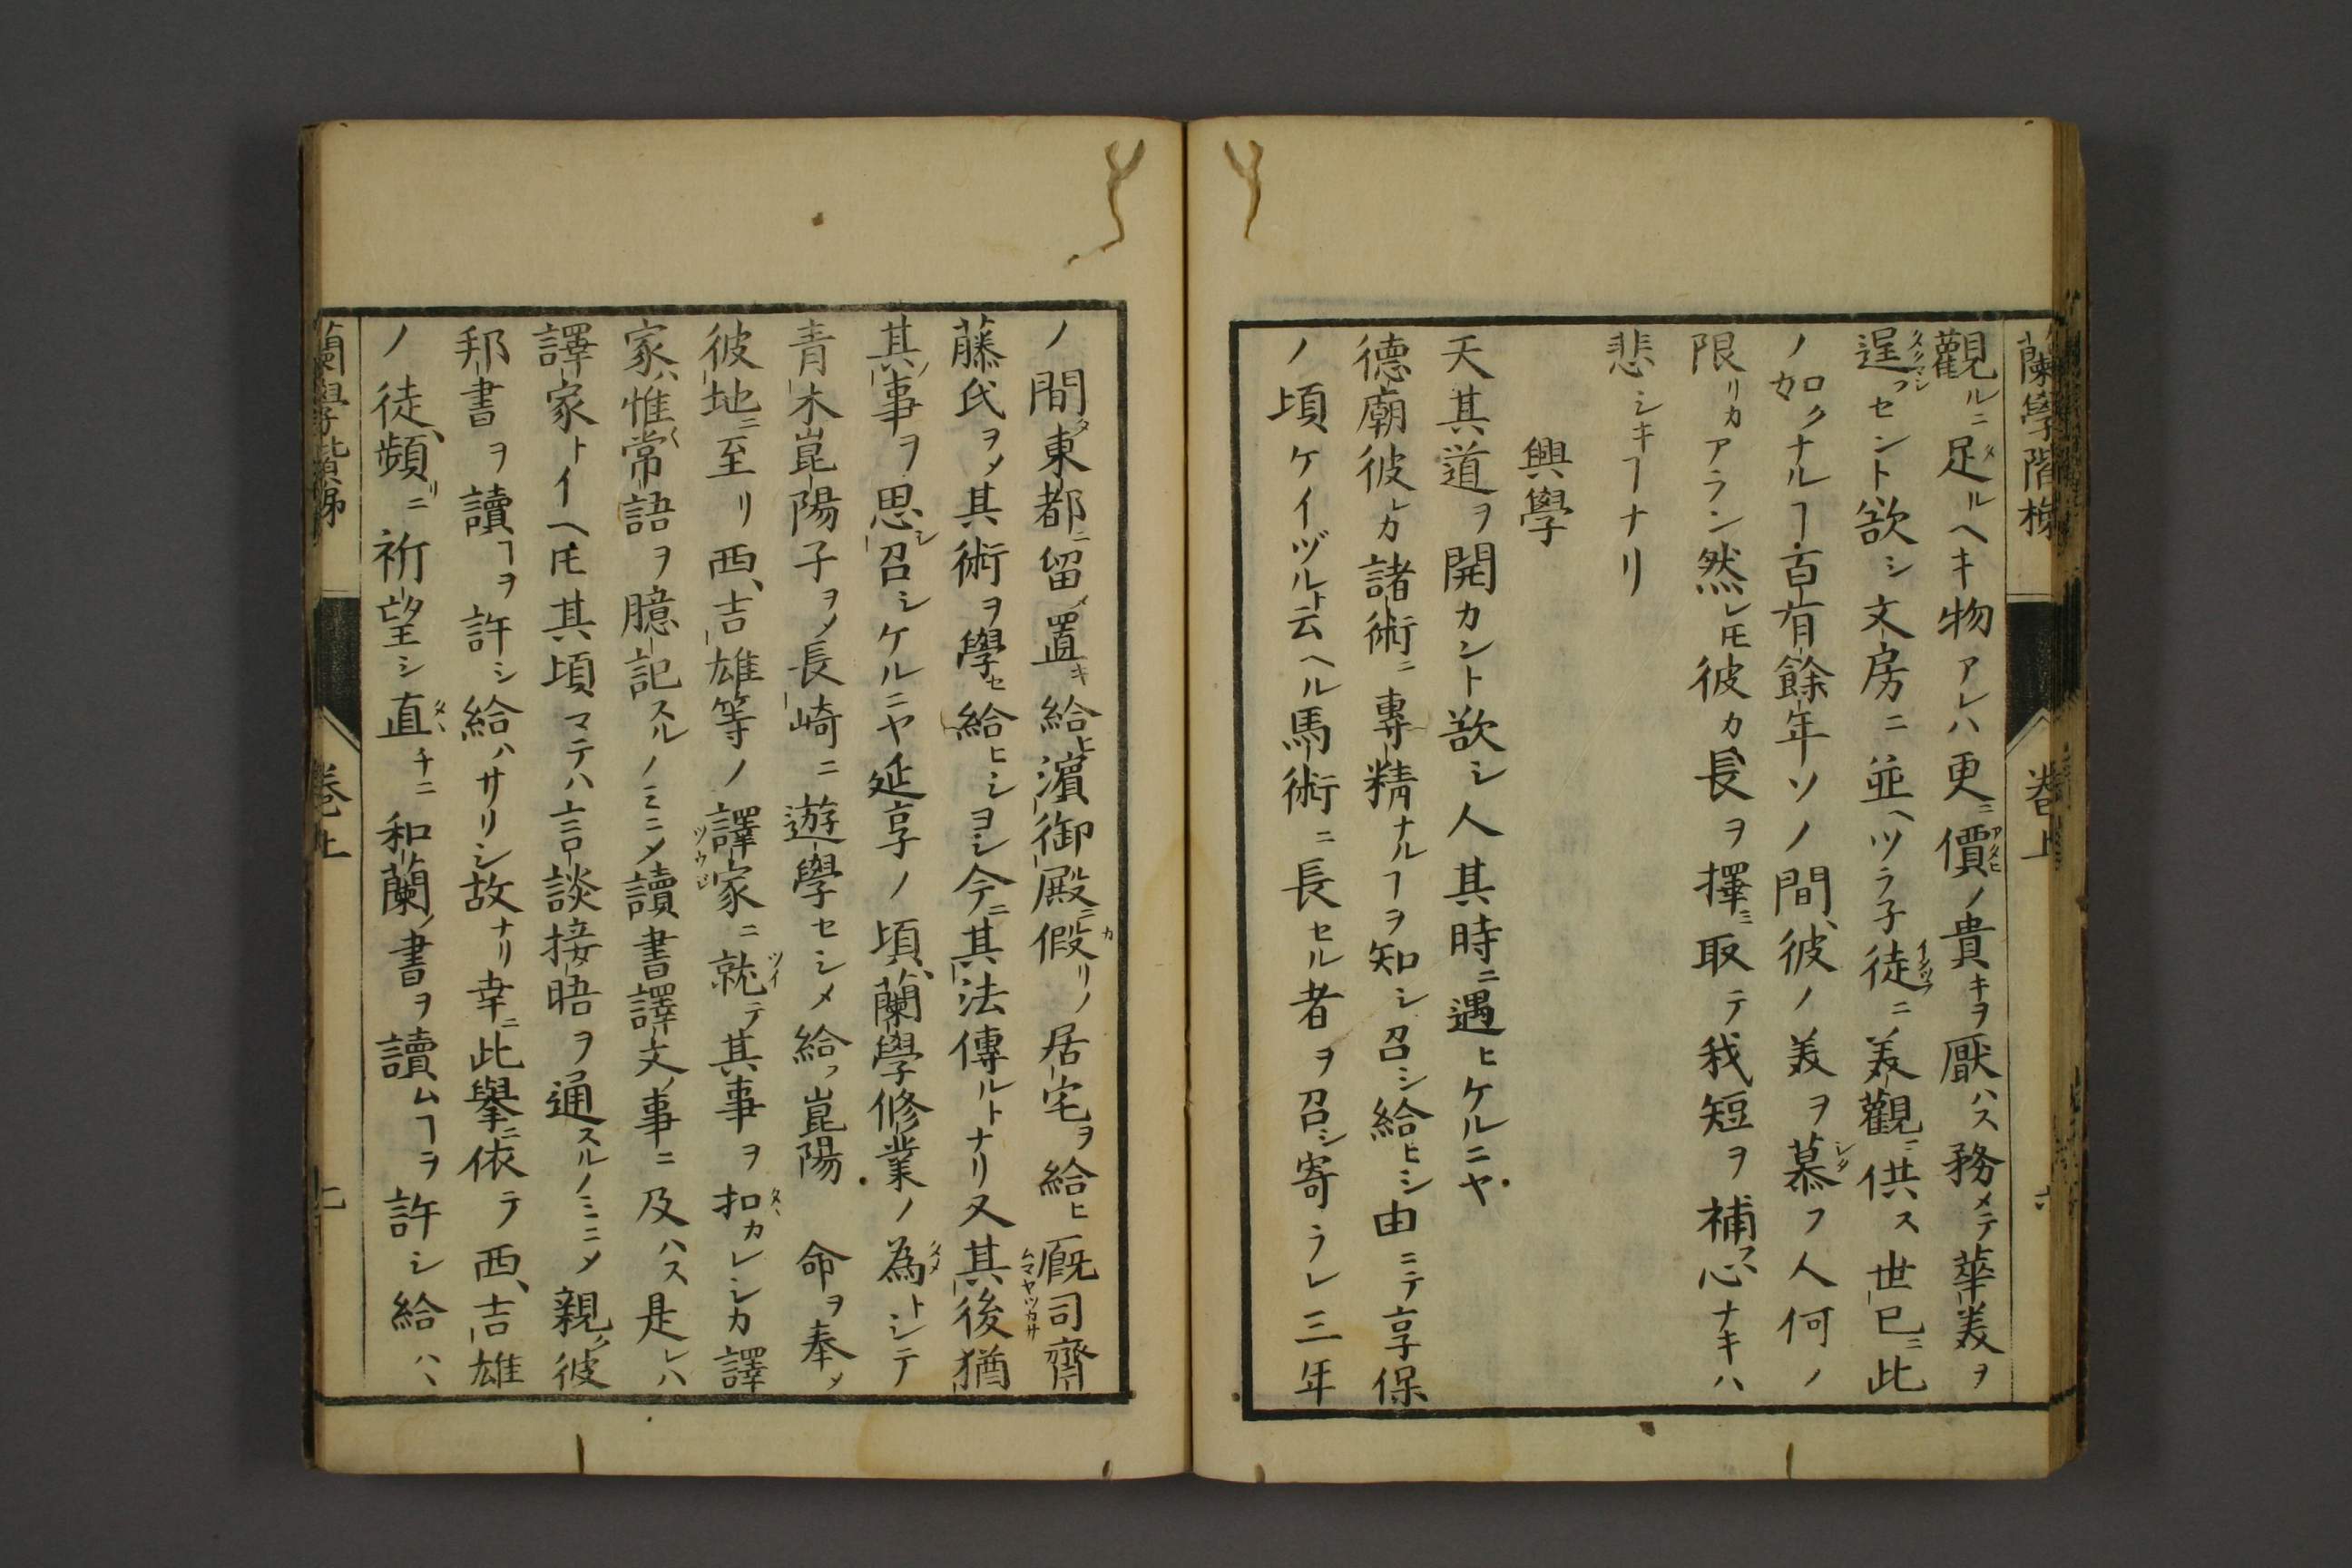 蘭學階梯 巻上 六
觀ルニ足ルヘキ物アレハ更ニ價ノ貴キヲ厭ハス務メテ華美ヲ
逞フセント欲シ文房ニ並ヘツラ子徒ニ美觀ニ供ス世已ニ此
ノ如クナルヿ百有餘年ソノ間彼ノ美ヲ慕フ人何ノ
限リカアラン然レ𪜈彼カ長ヲ擇ミ取テ我短ヲ補フ心ナキハ
悲シキヿナリ
興學
天其道ヲ開カント欲シ人其時ニ遇ヒケルニヤ
德廟彼レカ諸術ニ專精ナルヿヲ知シ召シ給ヒシ由ニテ享保
ノ頃ケイヅルト云ヘル馬術ニ長セル者ヲ召シ寄ラレ三年
ノ間東都ニ留メ置キ給ヒ濵御殿ニ假リノ居宅ヲ給ヒ厩司齋
藤氏ヲメ其術ヲ學セ給ヒシヨシ今ニ其法傳ルトナリ又其後猶
其ノ事ヲ思シ召シケルニヤ延享ノ頃蘭學修業ノ為トシテ
青木崑陽子ヲメ長崎ニ遊學セシメ給フ崑陽 命ヲ奉メ
彼地ニ至リ西、吉雄等ノ譯家ニ就テ其事ヲ扣カレシカ譯
家ハ惟常語ヲ臆記スルノミニメ讀書譯文ノ事ニ及ハス是レハ
譯家トイヘ𪜈其頃マテハ言談接晤ヲ通スルノミニメ親ク彼
邦書ヲ讀ヿヲ許シ給ハサリシ故ナリ幸ニ此擧ニ依テ西、吉雄
ノ徒、頻リニ祈望シ直チニ和蘭ノ書ヲ讀ムヿヲ許シ給ハヽ
蘭學階梯 巻上 七